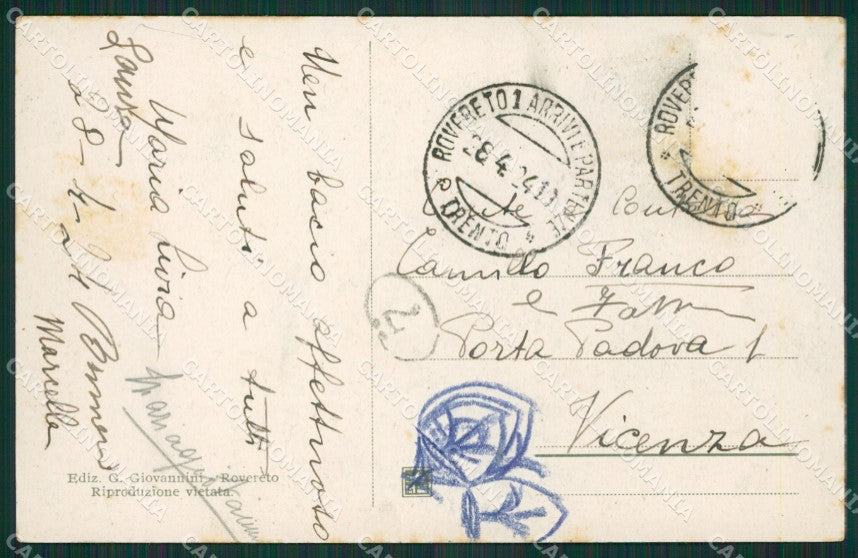 Un bacio affettuoso
e saluti a tutti
Maria Livia
Laura
28-4-24
Marcella
Ediz. G. Giovannini - Rovereto
Riproduzione vietata.
ROVERETO 1 ARRIVI E PARTENZE
28.4.24
TRENTO
ROVERETO
TRENTO
Conte
Camillo Franco
e
Porta Padova 1
Vicenza
CARTOLINOMANIA